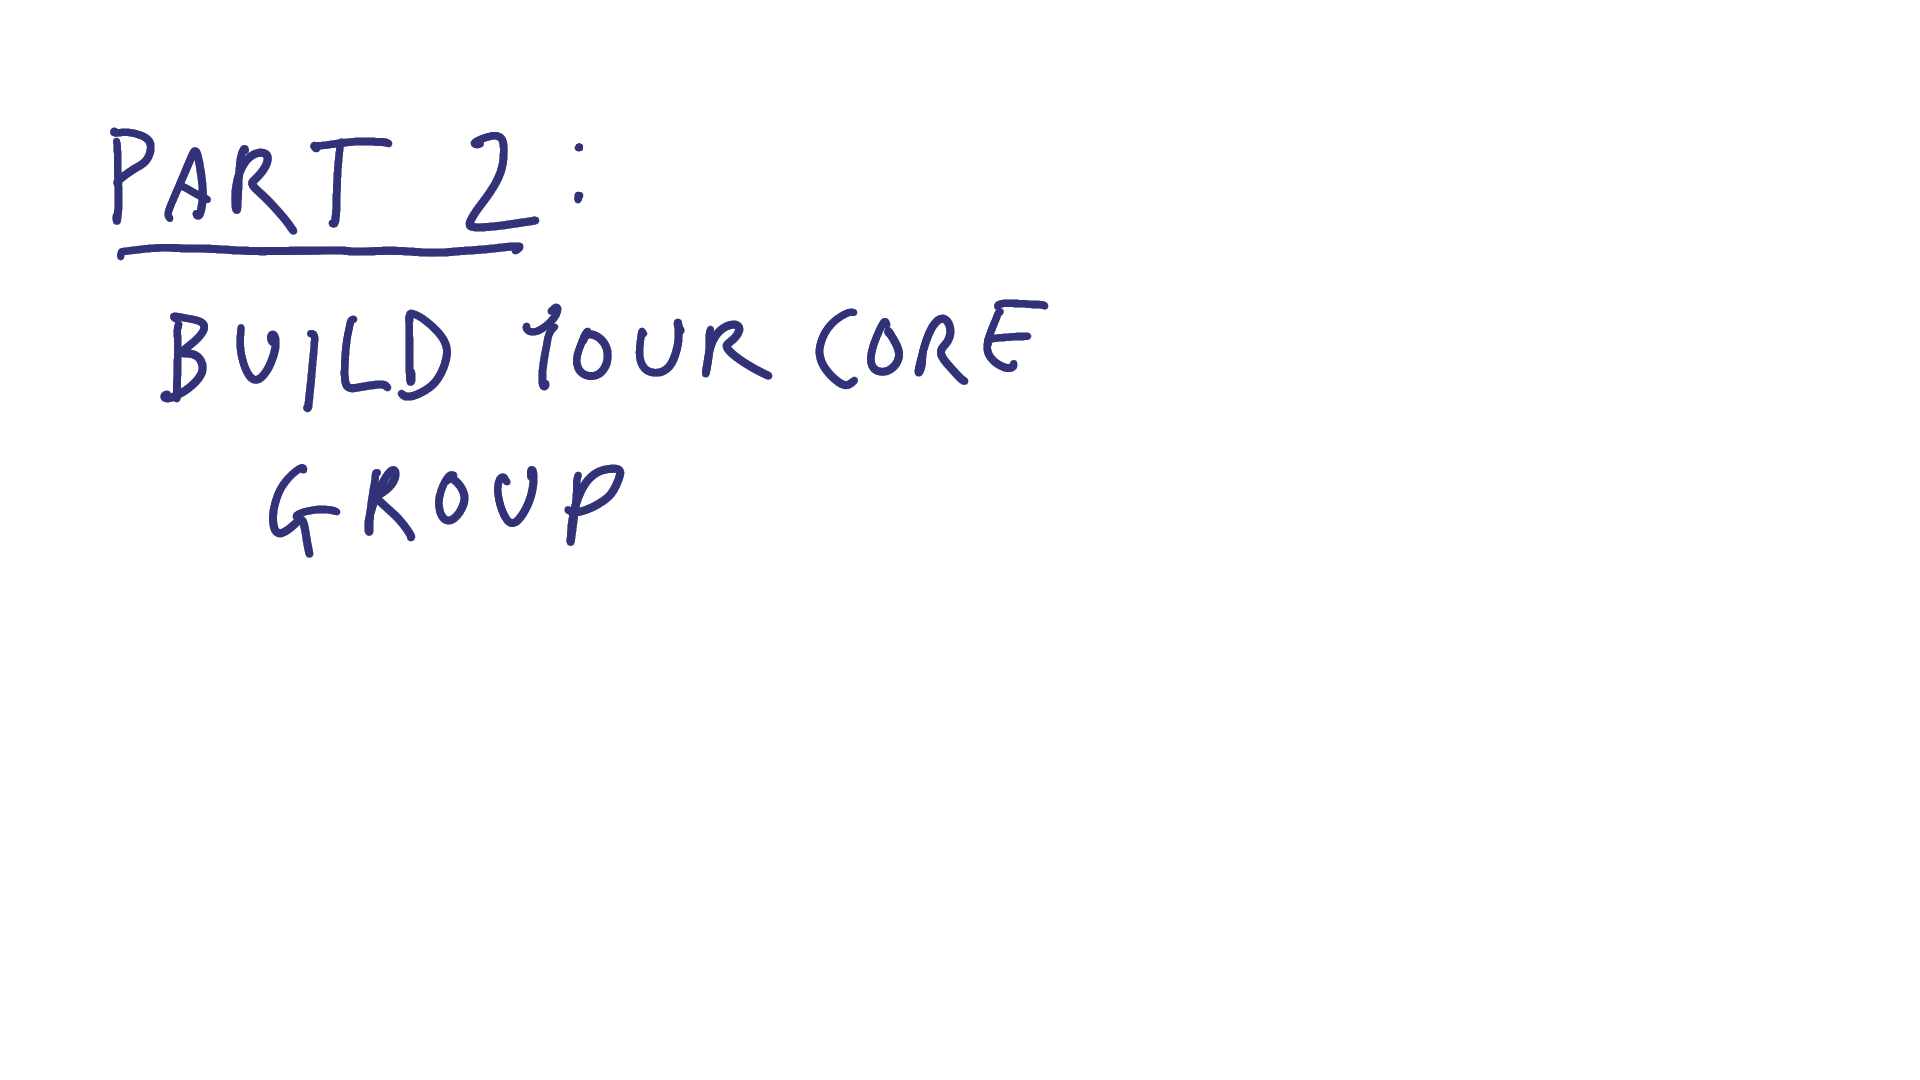 PART 2:
BUILD YOUR CORE
GROUP